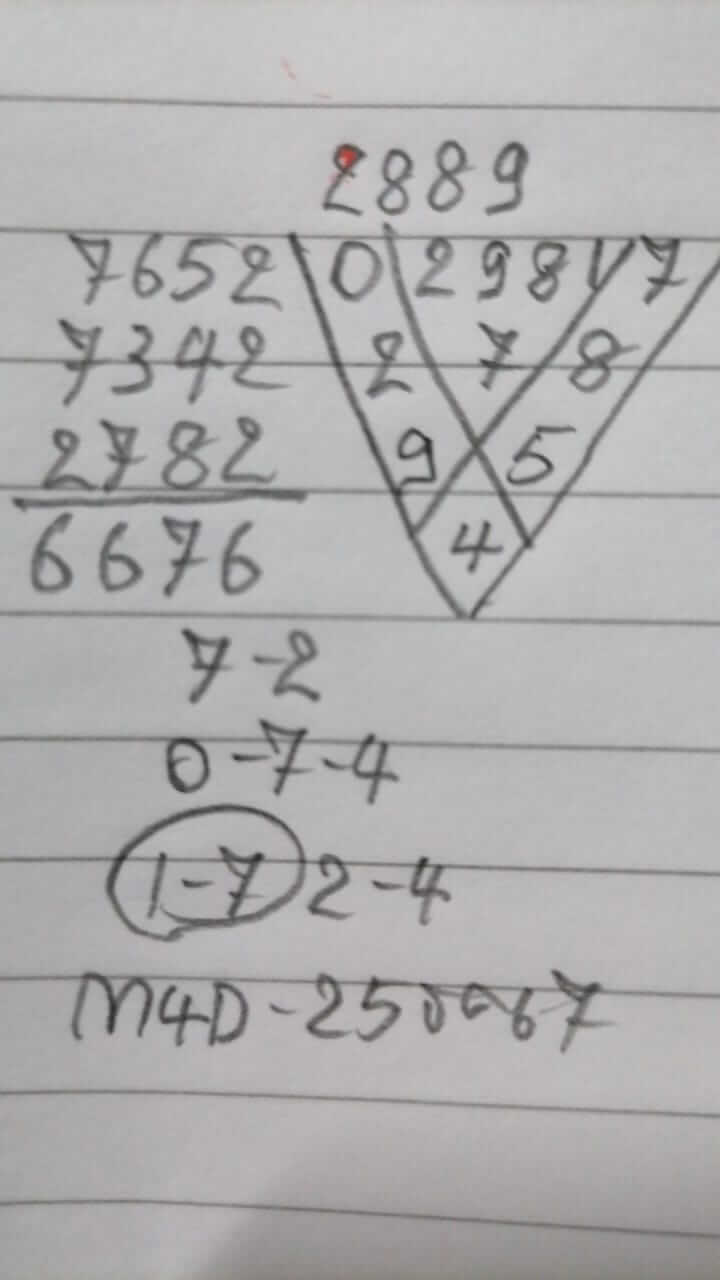 2889
7652 0 298 7
7342 2 7 8
2782 9 5
6676 4
7-2
0-7-4
1-7 2-4
M4D-25 67